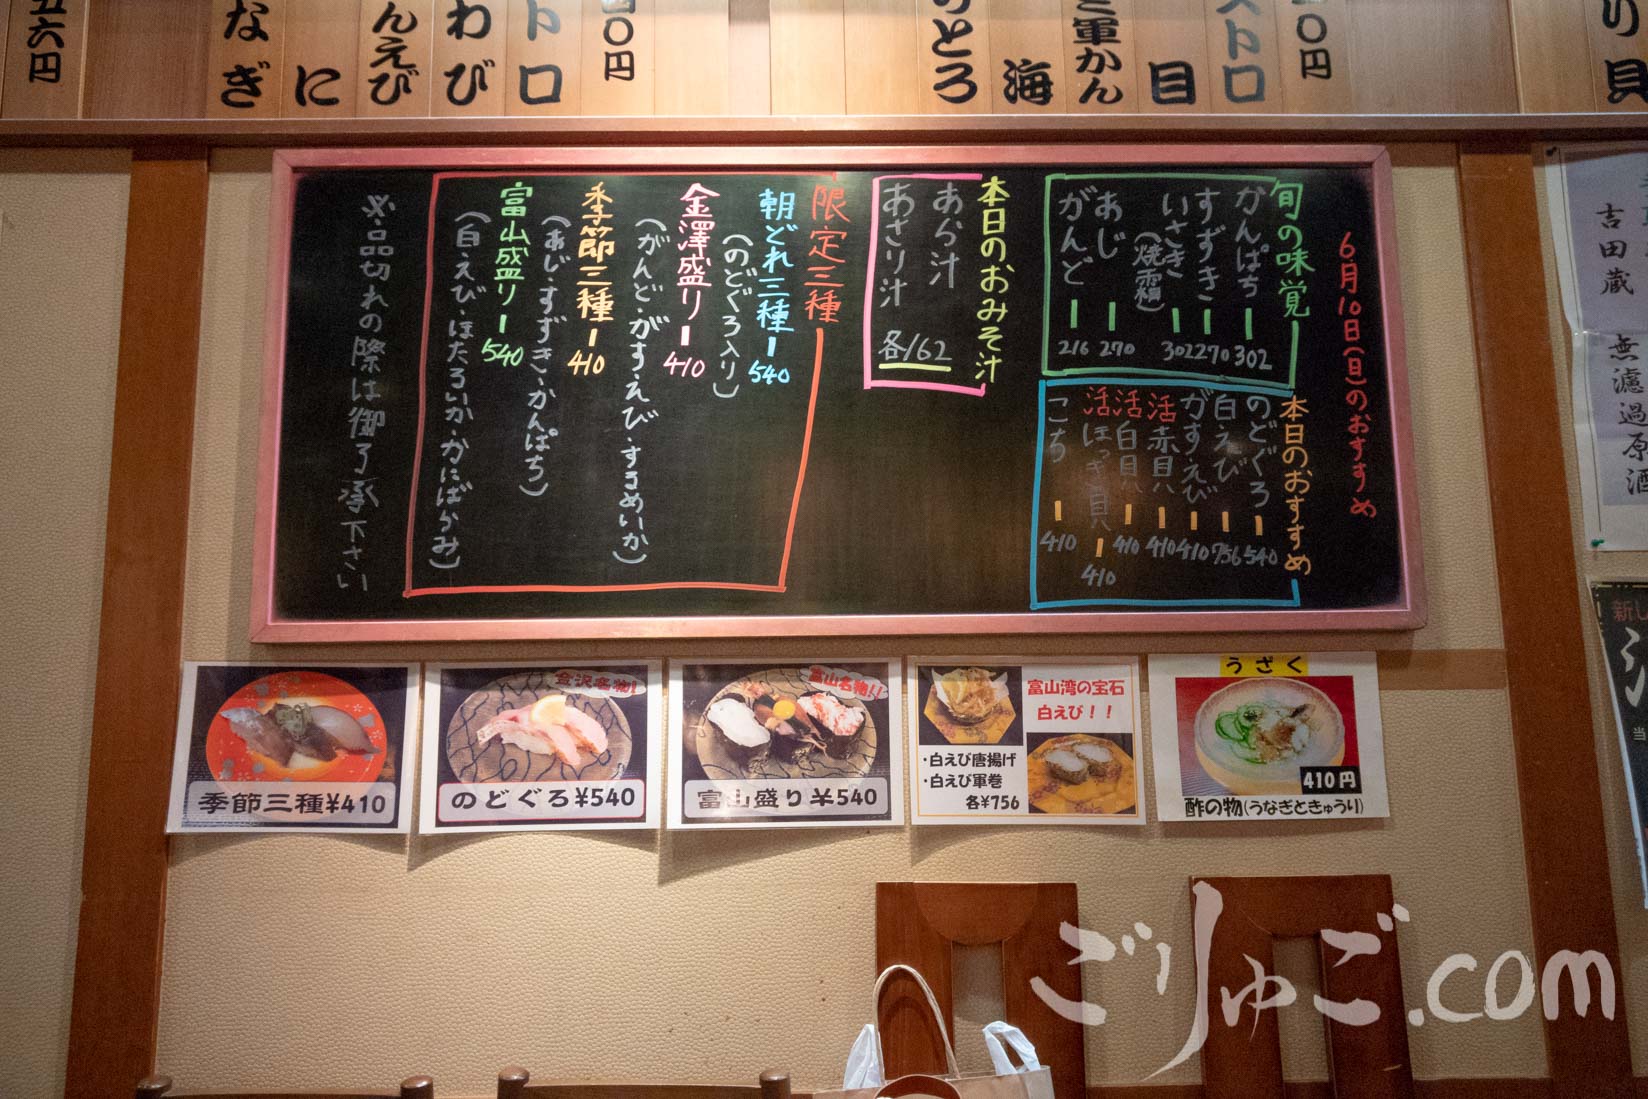 五六円
なぎ
に
んえび
わび
トロ
〇円
のとろ
海
軍かん
目
トロ
〇円
り貝
6月10日(日)のおすすめ
旬の味覚
かんぱち 302
すずき 270
いさき 302
(焼霜)
あじ 270
がんど 216
本日のおすすめ
のどぐろ 540
白えび 756
がすえび 410
活赤貝 410
活白貝 410
活ほっき貝 410
こち 410
本日のおみそ汁
あら汁
あさり汁
各162
限定三種
朝どれ三種 540
(のどぐろ入り)
金澤盛り 410
(がんど・がすえび・するめいか)
季節三種 410
(あじ・すずき・かんぱち)
富山盛り 540
(白えび・ほたるいか・かにばらみ)
※品切れの際は御了承下さい
季節三種¥410
金沢名物!
のどぐろ¥540
富山名物!!
富山盛り¥540
富山湾の宝石
白えび！！
・白えび唐揚げ
・白えび軍巻
各¥756
うざく
410円
酢の物(うなぎときゅうり)
吉田蔵
無濾過原酒
新し
当
ごりゅご.com